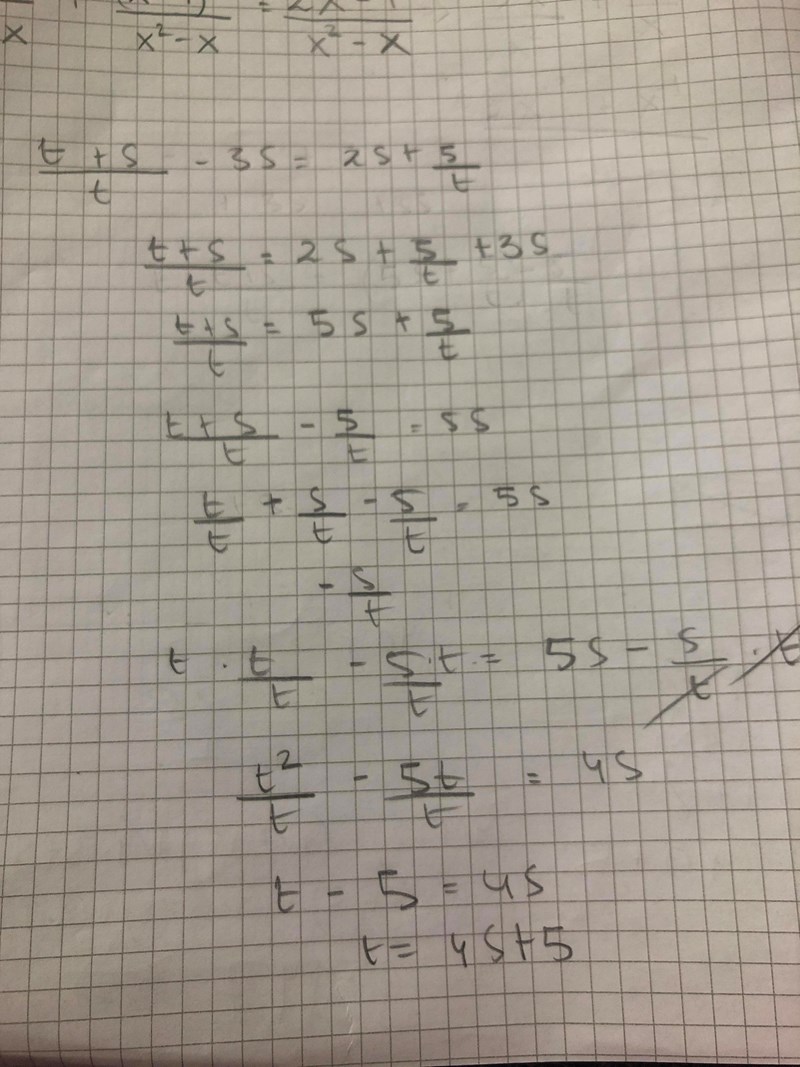 x²-x = x²-x
(t+s)/t - 3s = 2s + 5/t
(t+s)/t = 2s + 5/t + 3s
(t+s)/t = 5s + 5/t
(t+s)/t - 5/t = 5s
t/t + s/t - 5/t = 5s
- s/t
t · t/t - 5·t/t = 5s - s/t · t
t²/t - 5t/t = 4s
t - 5 = 4s
t = 4s+5